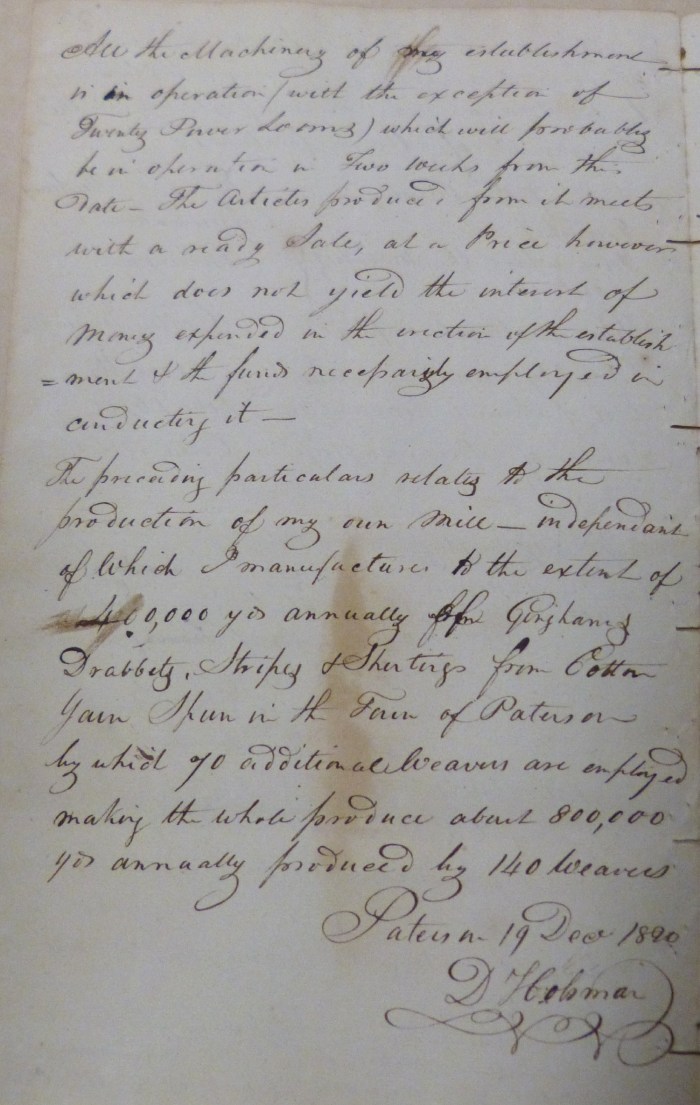 All the Machinery of my establishment
is in operation (with the exception of
Twenty Power Looms) which will probably
be in operation in Two weeks from this
Date – The Articles produced from it meets
with a ready Sale, at a Price however
which does not yield the interest of
Money expended in the erection of the establish
= ment & the funds necessarily employed in
conducting it –
The preceeding particulars relates to the
production of my own Mill – independant
of Which I manufactures to the extent of
400,000 yds annually of Ginghams
Drabbets, Stripes & Shertings from Cotton
Yarn Spun in the Town of Paterson
by which 70 additional Weavers are employed
making the whole produce about 800,000
yds annually produced by 140 Weavers
Paterson 19 Decr 1820
D Holsman